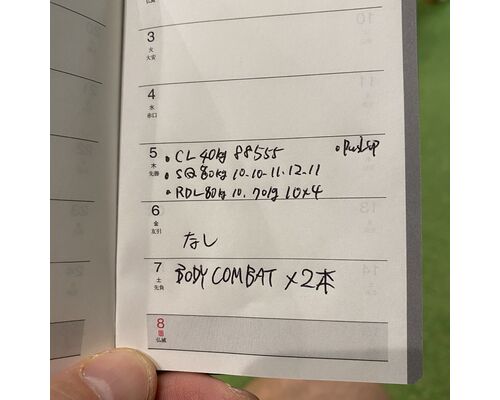 仏滅
3
火
大安
4
水
赤口
5
木
先勝
• CL 40kg 88555
• SQ 80kg 10.10.11.12.11
• RDL 80kg 10. 70kg 10×4
6
金
友引
なし
7
土
先負
BODY COMBAT ×2本
8
日
仏滅